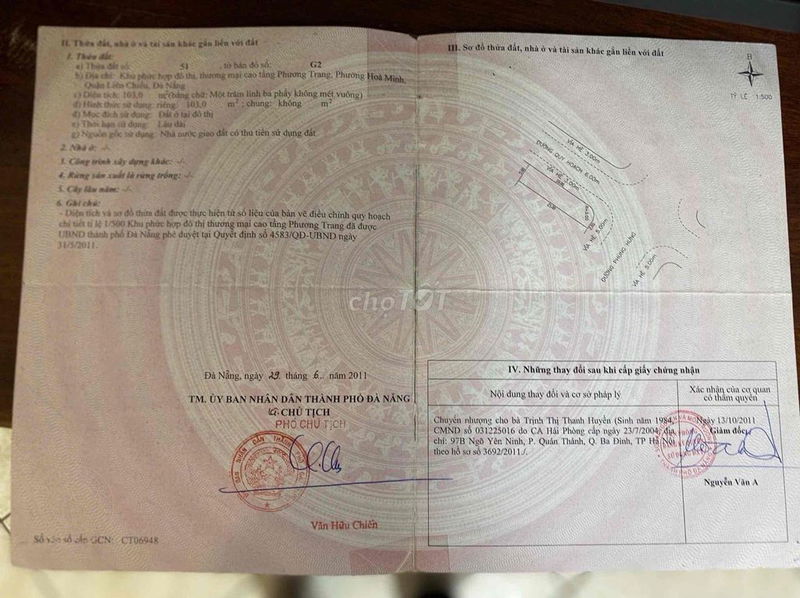 II. Thửa đất, nhà ở và tài sản khác gắn liền với đất
1. Thửa đất:
a) Thửa đất số: 51 , tờ bản đồ số: G2
b) Địa chỉ: Khu phức hợp đô thị, thương mại cao tầng Phương Trang, Phường Hoà Minh,
Quận Liên Chiểu, Đà Nẵng
c) Diện tích: 103,0 m² (bằng chữ: Một trăm linh ba phẩy không mét vuông)
d) Hình thức sử dụng: riêng: 103,0 m² ; chung: không m²
đ) Mục đích sử dụng: Đất ở tại đô thị
e) Thời hạn sử dụng: Lâu dài
g) Nguồn gốc sử dụng: Nhà nước giao đất có thu tiền sử dụng đất.
2. Nhà ở: -/-
3. Công trình xây dựng khác: -/-
4. Rừng sản xuất là rừng trồng: -/-
5. Cây lâu năm: -/-
6. Ghi chú:
- Diện tích và sơ đồ thửa đất được thực hiện từ số liệu của bản vẽ điều chỉnh quy hoạch
chi tiết tỉ lệ 1/500 Khu phức hợp đô thị thương mại cao tầng Phương Trang đã được
UBND thành phố Đà Nẵng phê duyệt tại Quyết định số 4583/QĐ-UBND ngày
31/5/2011.
Đà Nẵng, ngày 29 tháng 6 năm 2011
TM. ỦY BAN NHÂN DÂN THÀNH PHỐ ĐÀ NẴNG
CHỦ TỊCH
PHÓ CHỦ TỊCH
Văn Hữu Chiến
Số vào sổ cấp GCN: CT06948
III. Sơ đồ thửa đất, nhà ở và tài sản khác gắn liền với đất
B
TỶ LỆ 1:500
VỈA HÈ 3.00m
ĐƯỜNG QUY HOẠCH 6.00m
VỈA HÈ 3.00m
VỈA HÈ 5.00m
ĐƯỜNG PHÙNG HƯNG
VỈA HÈ 5.00m
chợTỐT
IV. Những thay đổi sau khi cấp giấy chứng nhận
Nội dung thay đổi và cơ sở pháp lý
Xác nhận của cơ quan
có thẩm quyền
Chuyển nhượng cho bà Trịnh Thị Thanh Huyền (Sinh năm 1984,
CMND số 031225016 do CA Hải Phòng cấp ngày 23/7/2004, địa
chỉ: 97B Ngõ Yên Ninh, P. Quán Thánh, Q. Ba Đình, TP Hà Nội
theo hồ sơ số 3692/2011./.
Ngày 13/10/2011
Giám đốc
Nguyễn Văn A